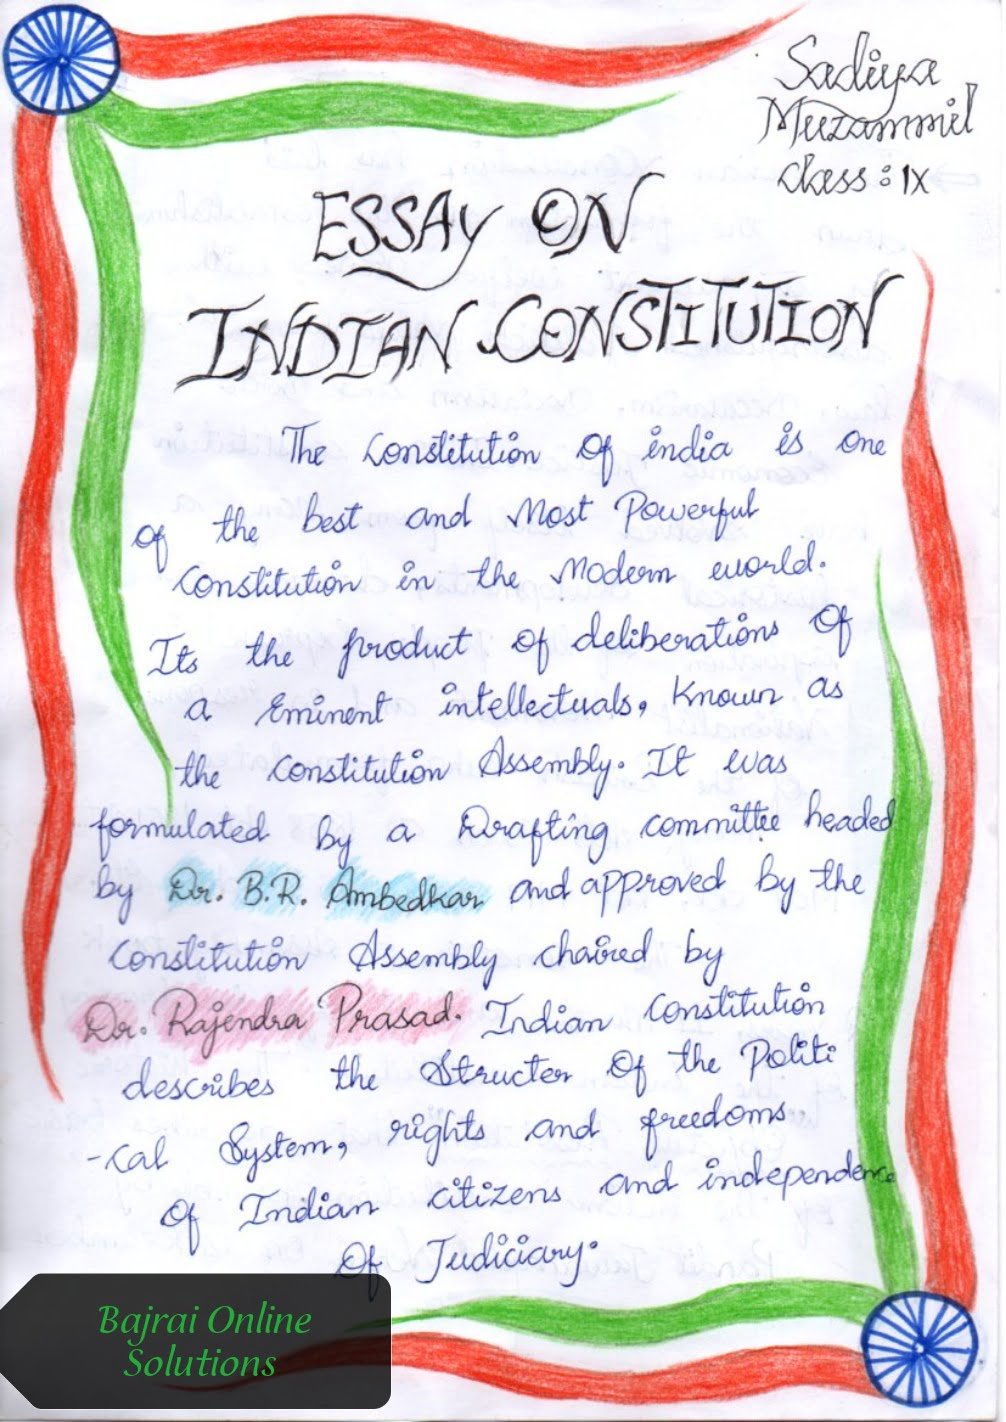 Sadiya
Muzammil
Class : IX
ESSAY ON
INDIAN CONSTITUTION
The Constitution of india is one
of the best and Most Powerful
Constitution in the Modern world.
Its the product of deliberations of
a Eminent intellectuals, Known as
the Constitution Assembly. It was
formulated by a Drafting committee headed
by Dr. B.R. Ambedkar and approved by the
Constitution Assembly chaired by
Dr. Rajendra Prasad. Indian Constitution
describes the Structer Of the Politi
-cal System, rights and freedoms
of Indian citizens and independence
Of Judiciary.
Bajrai Online
Solutions